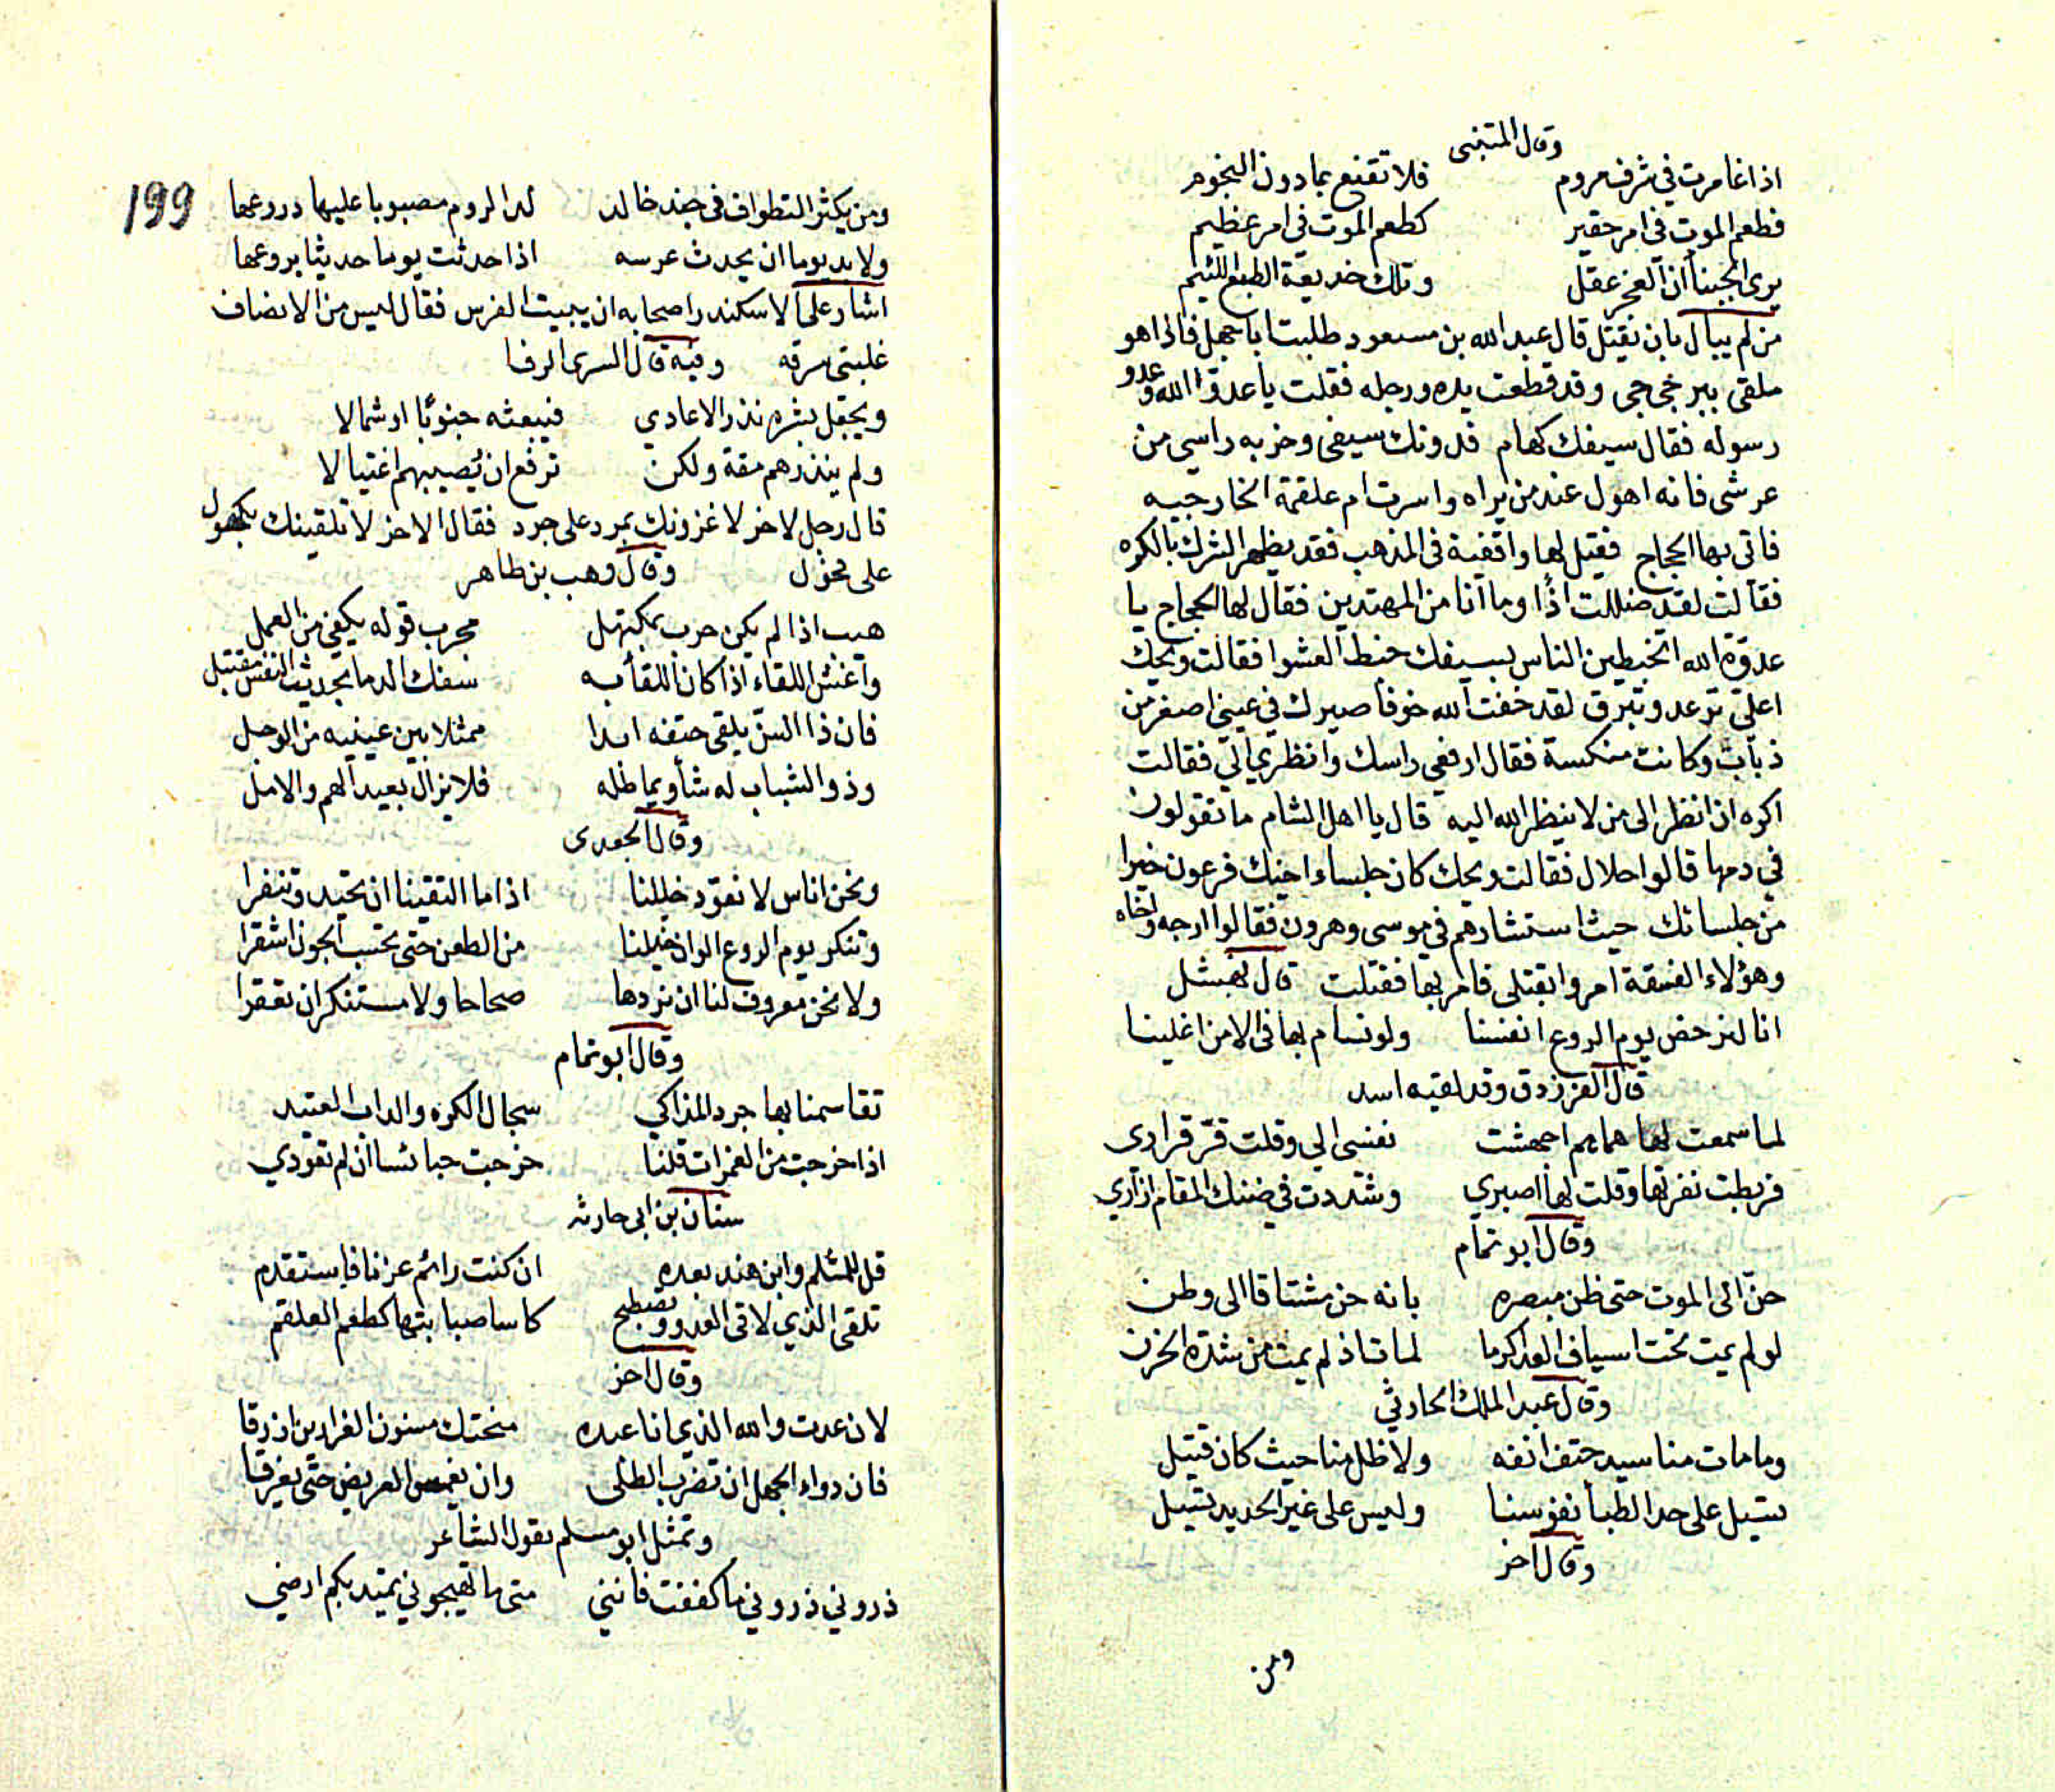 وقال المتنبى
اذا غامرت في شرف مروم فلا تقنع بمادون النجوم
فطعم الموت فى امر حقير كطعم الموت فى امر عظيم
يرى الجبنا ان العجز عقل وتلك خديعة الطبع اللئيم
من لم يبال بان يقتل قال عبد الله بن مسعود طلبت اباجهل فاذا هو
ملقى يبربخى جى وقد قطعت يده ورجله فقلت يا عدو الله وعدو
رسوله فقال سيفك كهام فدونك سيفى وخز به راسي من
عرشى فانه اهول عند من يراه واسرت ام علقمة الخارجيه
فاتى بها الحجاج فقيل لها وافقيه فى المذهب فقد يظهر الشرك بالكره
فقالت لقد ضللت اذا وما انا من المهتدين فقال لها الحجاج يا
عدوة الله اتخبطين الناس بسيفك خبط العشوا فقالت ويحك
اعليّ توعد وتبرق لقد خفت الله خوفا صيرك في عيني اصغر من
ذباب وكانت منكسة فقال ارفعي راسك وانظري اليّ فقالت
اكره ان انظر الى من لا ينظر الله اليه قال يا اهل الشام ما تقولون
في دمها قالوا حلال فقالت ويحك كان جلساء اخيك فرعون خيرا
من جلسائك حيث استشارهم في موسى وهرون فقالوا ارجه واخاه
وهؤلاء الفسقة امروا بقتلى فامر بها فقتلت قال نهشل
انا لنرخص يوم الروع انفسنا ولو نسام بها فى الامن اغلينا
قال الفرزدق وقد لقيه اسد
لما سمعت لها هماهم اجهشت نفسى الي وقلت قرّ قرارى
فربطت نفرتها وقلت لها اصبري وشددت في ضنك المقام ازاري
وقال ابو تمام
حنّ الى الموت حتى ظن مبصره بانه حن مشتاقا الى وطن
لو لم يمت تحت اسياف العدا كرما لمات اذ لم يمت من شدة الحزن
وقال عبد الملك الحارثي
وما مات منا سيد حتف انفه ولا ظل منا حيث كان قتيل
تسيل على حد الظبا نفوسنا وليس على غير الحديد تسيل
وقال اخر
ومن
199
ومن يكثر التطواف فى جند خالد لدا الروم مصبوبا عليها دروعها
ولا بد يوما ان يحدث عرسه اذا حدثت يوما حديثا يروعها
اشار على الاسكندر اصحابه ان يبيت الفرس فقال ليس من الانصاف
غلبتى سرقه وفيه قال السرى الرفا
ويجعل بشره نذر الاعادي فيبعثه جنوبا او شمالا
ولم ينذرهم مقة ولكن ترفع ان يصيبهم اغتيالا
قال رجل لاخر لاغزونك بمرد على جرد فقال الاخر لا تلقينك بكهول
على فحول وقال وهب بن طاهر
هيب اذا لم يكن حرب بمكتهل مجرب قوله يكفي من العمل
واغش اللقاء اذا كان اللقأ به سفك الدما بحديث النفس مقتبل
فان ذا السنّ يلقى حتفه ابدا ممثلا بين عينيه من الوجل
وذو الشباب له شأو يماطله فلا يزال بعيد الهم والامل
وقال الجعدى
ونحن اناس لا نعوّد خيلنا اذا ما التقينا ان تحيد وتنفرا
وتنكر يوم الروع الوان خيلنا من الطعن حتى تحسب الجون اشقرا
ولا نحن معروف لنا ان نردها صحاحا ولا مستنكر ان تعقرا
وقال ابو تمام
تقاسمنا بها جرد المذاكي سجال الكره والداب العتيد
اذا خرجت من الغمرات قلنا خرجت حبائسا ان لم تعودي
سنان بن ابى حارثه
قل للمثلم وابن هند بعده ان كنت رائم عزنا فاستقدم
تلقى الذي لاقى العدو وتصطبح كاسا صبابتها كطعم العلقم
وقال اخر
لان عدت والله الذي انا عبده منحتك مسنون الغرارين ازرقا
فان دواء الجهل ان تضرب الطلى وان يغمس العريض حتى يغرقا
وتمثل ابو مسلم بقول الشاعر
ذروني ذروني ما كففت فانني متى ما تهيجوني تميد بكم ارضي